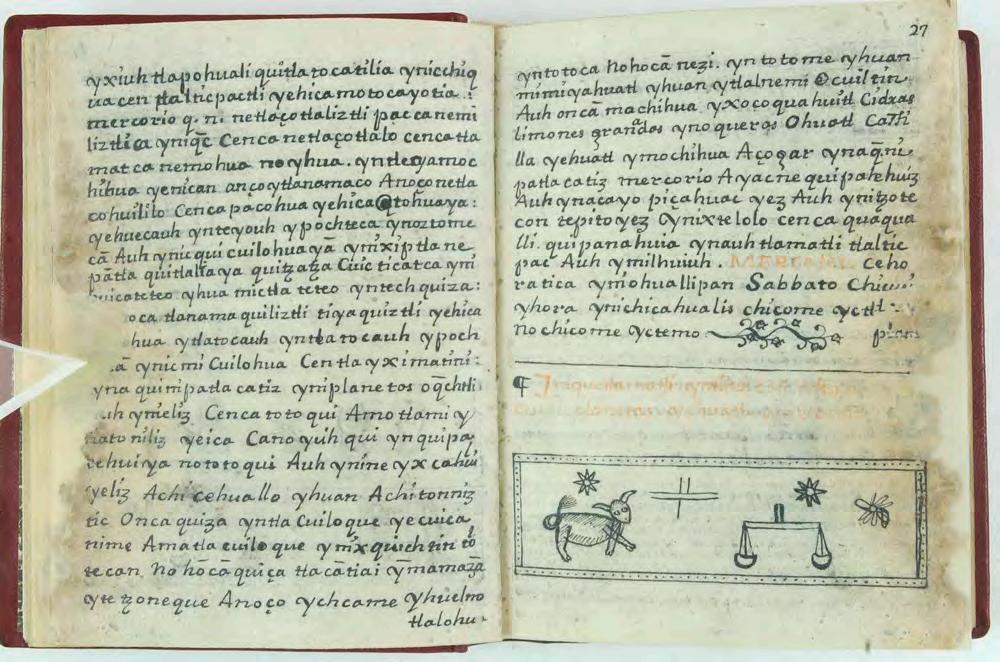 yxiuh tlapohuali quitlatocatilia ynicchiq
uacen tlalticpactli yehica motocayotia :
mercorio q. ni netlaçotlaliztli paccanemi
liztlica yniq̄c Cenca netlaçotlalo cencatla
matca nemohua no yhua. yntleyamoc
hihua yenican anço ytlanamaco Anoço netla
cohuililo Cenca pacohua yehica otohuaya :
yehuecauh ynteyouh ypochteca ynoztome
cā Auh ynic qui cuilohuayā ymixiptla ne
pātla quitlaliaya quitzatza Cuicticatca yni
cuicateteo yhua mictla teteo yntech quiza :
oca tlanamaquiliztli tiyaquiztli yehica
hua ytlatocauh yntlatocauh ypoch
ā ynic mi Cuilohua Centla yximatini :
yna quinipatlacatiz ymplanetos oqchtli
uh ynieliz Cenca totoqui Amo tlami y
tlatoniliz yeica Canoyuh qui ynquipa
cehuiya no totoqui Auh ynine yxcahui
yeliz Achi cehuallo yhuan Achi tonniz
tic Onca quiza yntlacuiloque yecuica
nime Amatlacuiloque ymixquichtin to
tecan. no hōcā quiça tlacātiai ymamaçā
yte tzoneque Anoço ychcame yhuelno
tlalohu
27
yntotoca hohocā nezi. yn totome yhuan
mimiyahuatl yhuan ytlalnemi Ocuiltin
Auh oncā machihua yxocoquahuitl Cidras
limones granados ynoqueros Ohuatl Casti
lla yehuatl ymochihua Açogar ynaq̄ni
patlacatiz mercorio Ayacne quipatehuiz
Auh ynacayo piçahuac yez Auh ynitzote
con tepitoyez Ynixtelolo cenca quāqua
lli. quipanahuia ynauhtlamatli tlaltic
pac Auh ymilhuiuh . Ceho
ratica ymohuallipan Sabbato Chicu
yhora ynichicahualis chicome yctl
nochicome yctemo
¶